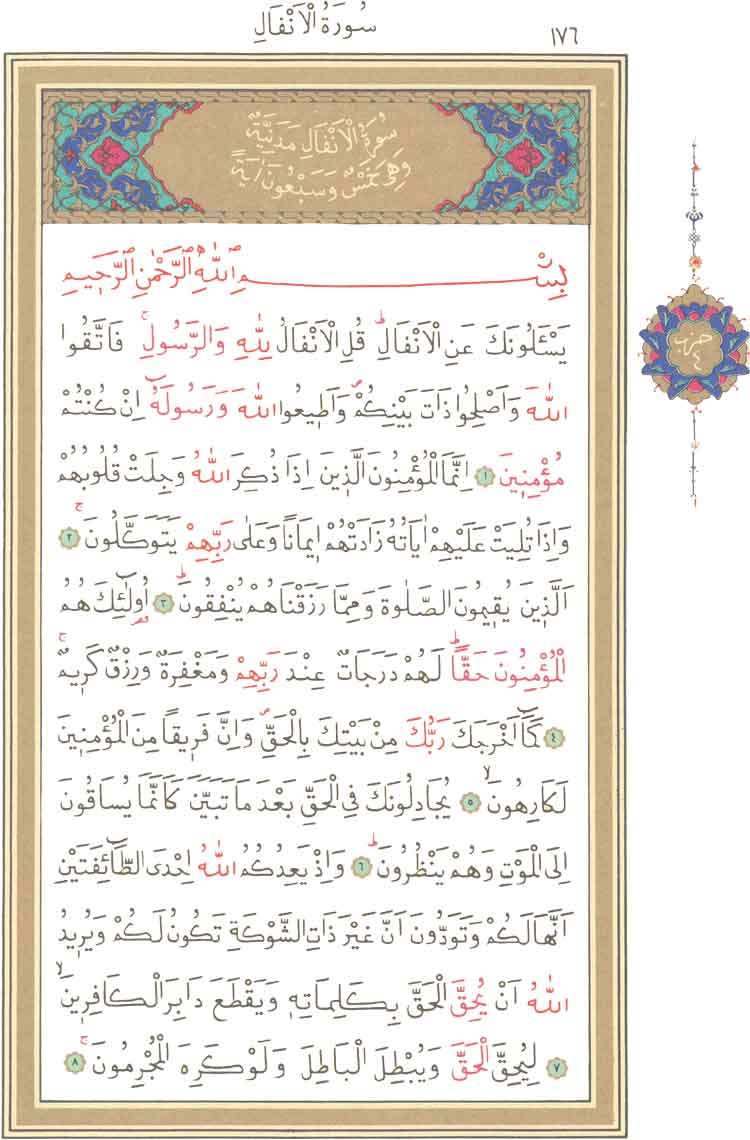 سُورَةُ الْاَنْفَالِ
١٧٦
سُورَةُ الْاَنْفَالِ مَدَنِيَّةٌ
وَهِىَ خَمْسٌ وَسَبْعُونَ اٰيَةً
بِسْمِ اللّٰهِ الرَّحْمٰنِ الرَّحٖيمِ
يَسْـَٔلُونَكَ عَنِ الْاَنْفَالِؕ قُلِ الْاَنْفَالُ لِلّٰهِ وَالرَّسُولِۚ فَاتَّقُوا
اللّٰهَ وَاَصْلِحُوا ذَاتَ بَيْنِكُمْࣕ وَاَطٖيعُوا اللّٰهَ وَرَسُولَهُٓ اِنْ كُنْتُمْ
مُؤْمِنٖينَ ١ اِنَّمَا الْمُؤْمِنُونَ الَّذٖينَ اِذَا ذُكِرَ اللّٰهُ وَجِلَتْ قُلُوبُهُمْ
وَاِذَا تُلِيَتْ عَلَيْهِمْ اٰيَاتُهُ زَادَتْهُمْ اٖيمَاناً وَعَلٰى رَبِّهِمْ يَتَوَكَّلُونَۚ ٢
اَلَّذٖينَ يُقٖيمُونَ الصَّلٰوةَ وَمِمَّا رَزَقْنَاهُمْ يُنْفِقُونَؕ ٣ اُو۬لٰٓئِكَ هُمُ
الْمُؤْمِنُونَ حَقّاًؕ لَهُمْ دَرَجَاتٌ عِنْدَ رَبِّهِمْ وَمَغْفِرَةٌ وَرِزْقٌ كَرٖيمٌۚ
٤ كَمَٓا اَخْرَجَكَ رَبُّكَ مِنْ بَيْتِكَ بِالْحَقِّࣕ وَاِنَّ فَرٖيقاً مِنَ الْمُؤْمِنٖينَ
لَكَارِهُونَۙ ٥ يُجَادِلُونَكَ فِى الْحَقِّ بَعْدَ مَا تَبَيَّنَ كَاَنَّمَا يُسَاقُونَ
اِلَى الْمَوْتِ وَهُمْ يَنْظُرُونَؕ ٦ وَاِذْ يَعِدُكُمُ اللّٰهُ اِحْدَى الطَّٓائِفَتَيْنِ
اَنَّهَا لَكُمْ وَتَوَدُّونَ اَنَّ غَيْرَ ذَاتِ الشَّوْكَةِ تَكُونُ لَكُمْ وَيُرٖيدُ
اللّٰهُ اَنْ يُحِقَّ الْحَقَّ بِكَلِمَاتِهٖ وَيَقْطَعَ دَابِرَ الْكَافِرٖينَۙ
٧ لِيُحِقَّ الْحَقَّ وَيُبْطِلَ الْبَاطِلَ وَلَوْ كَرِهَ الْمُجْرِمُونَۚ ٨
حزب
٤